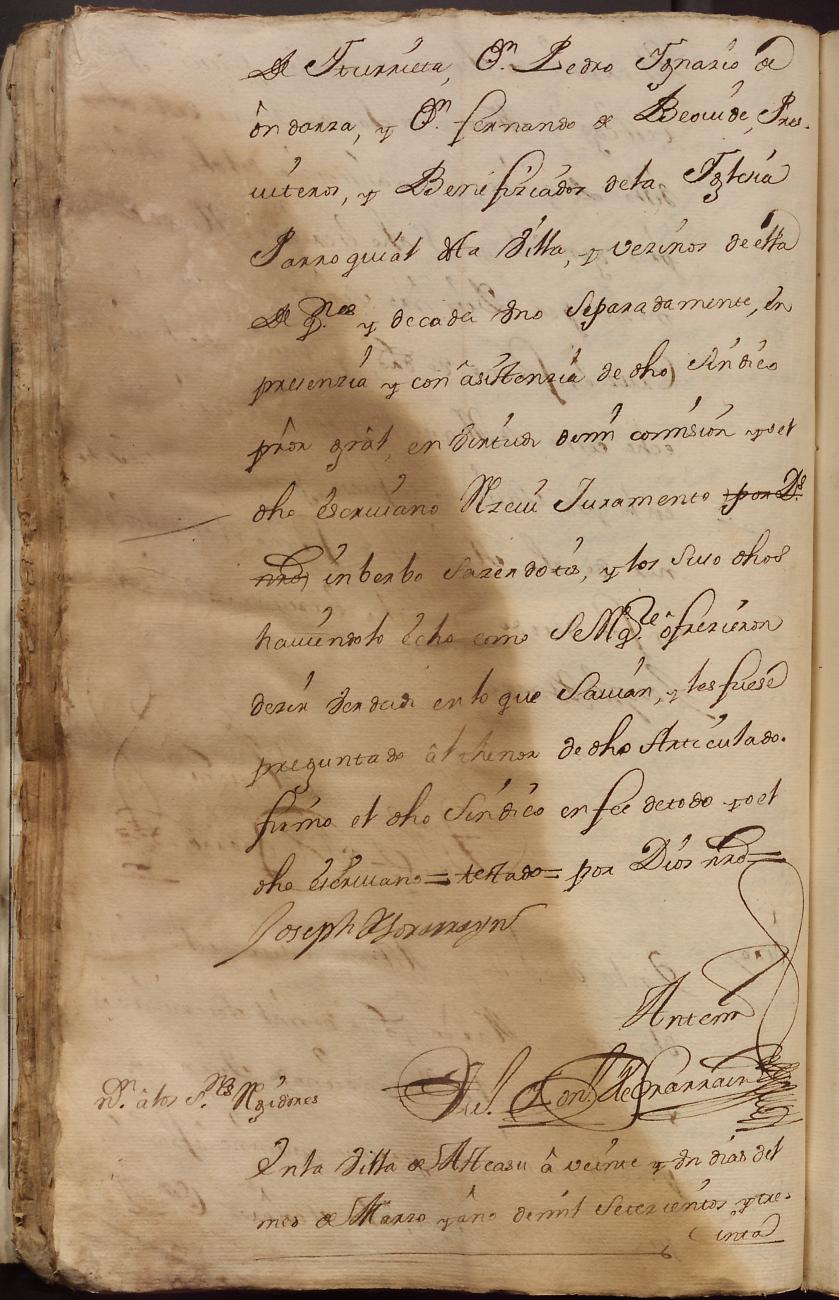 de Iturrieta, Dn. Pedro Ignazio de
ôndarza, y Dn. fernando de Beovide, Pres-
viteros, y Benefiziados dela Yglesia
Parroquial dela Villa, y vezinos de ella
de qnes y de cada vno separadamente, en
presenzia y con asistenzia de dho Sindico
pror gral, en virtud demi comision yo el
dho escriuano Rzeui Juramento por Ds.
nro, in berbo sazerdotis, y los suso dhos
hauiendolo echo como se Rqe. ofrezieron
dezir verdad en lo que sauian, y les fuese
preguntado âl thenor de dho Articulado.
firmo el dho Sindico en fee de todo yo el
dho escriuano = testado = por Dios nro =
Joseph
Antemi
nn. a los Sres Rgidores
Enla Villa de Alteasu â veinte y vn dias del
mes de Marzo y año demil Setezientos y tre-
inta